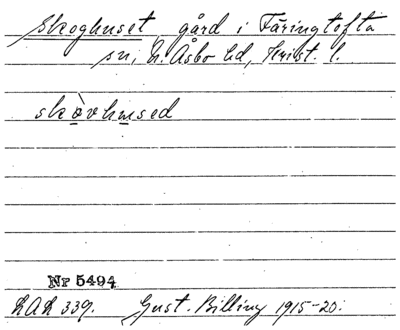 Skoghuset, gård i Färingtofta
sn, N. Åsbo hd, Krist. l.
skòvhused
Nr 5494
LAL 339. Gust. Billing 1915-20.